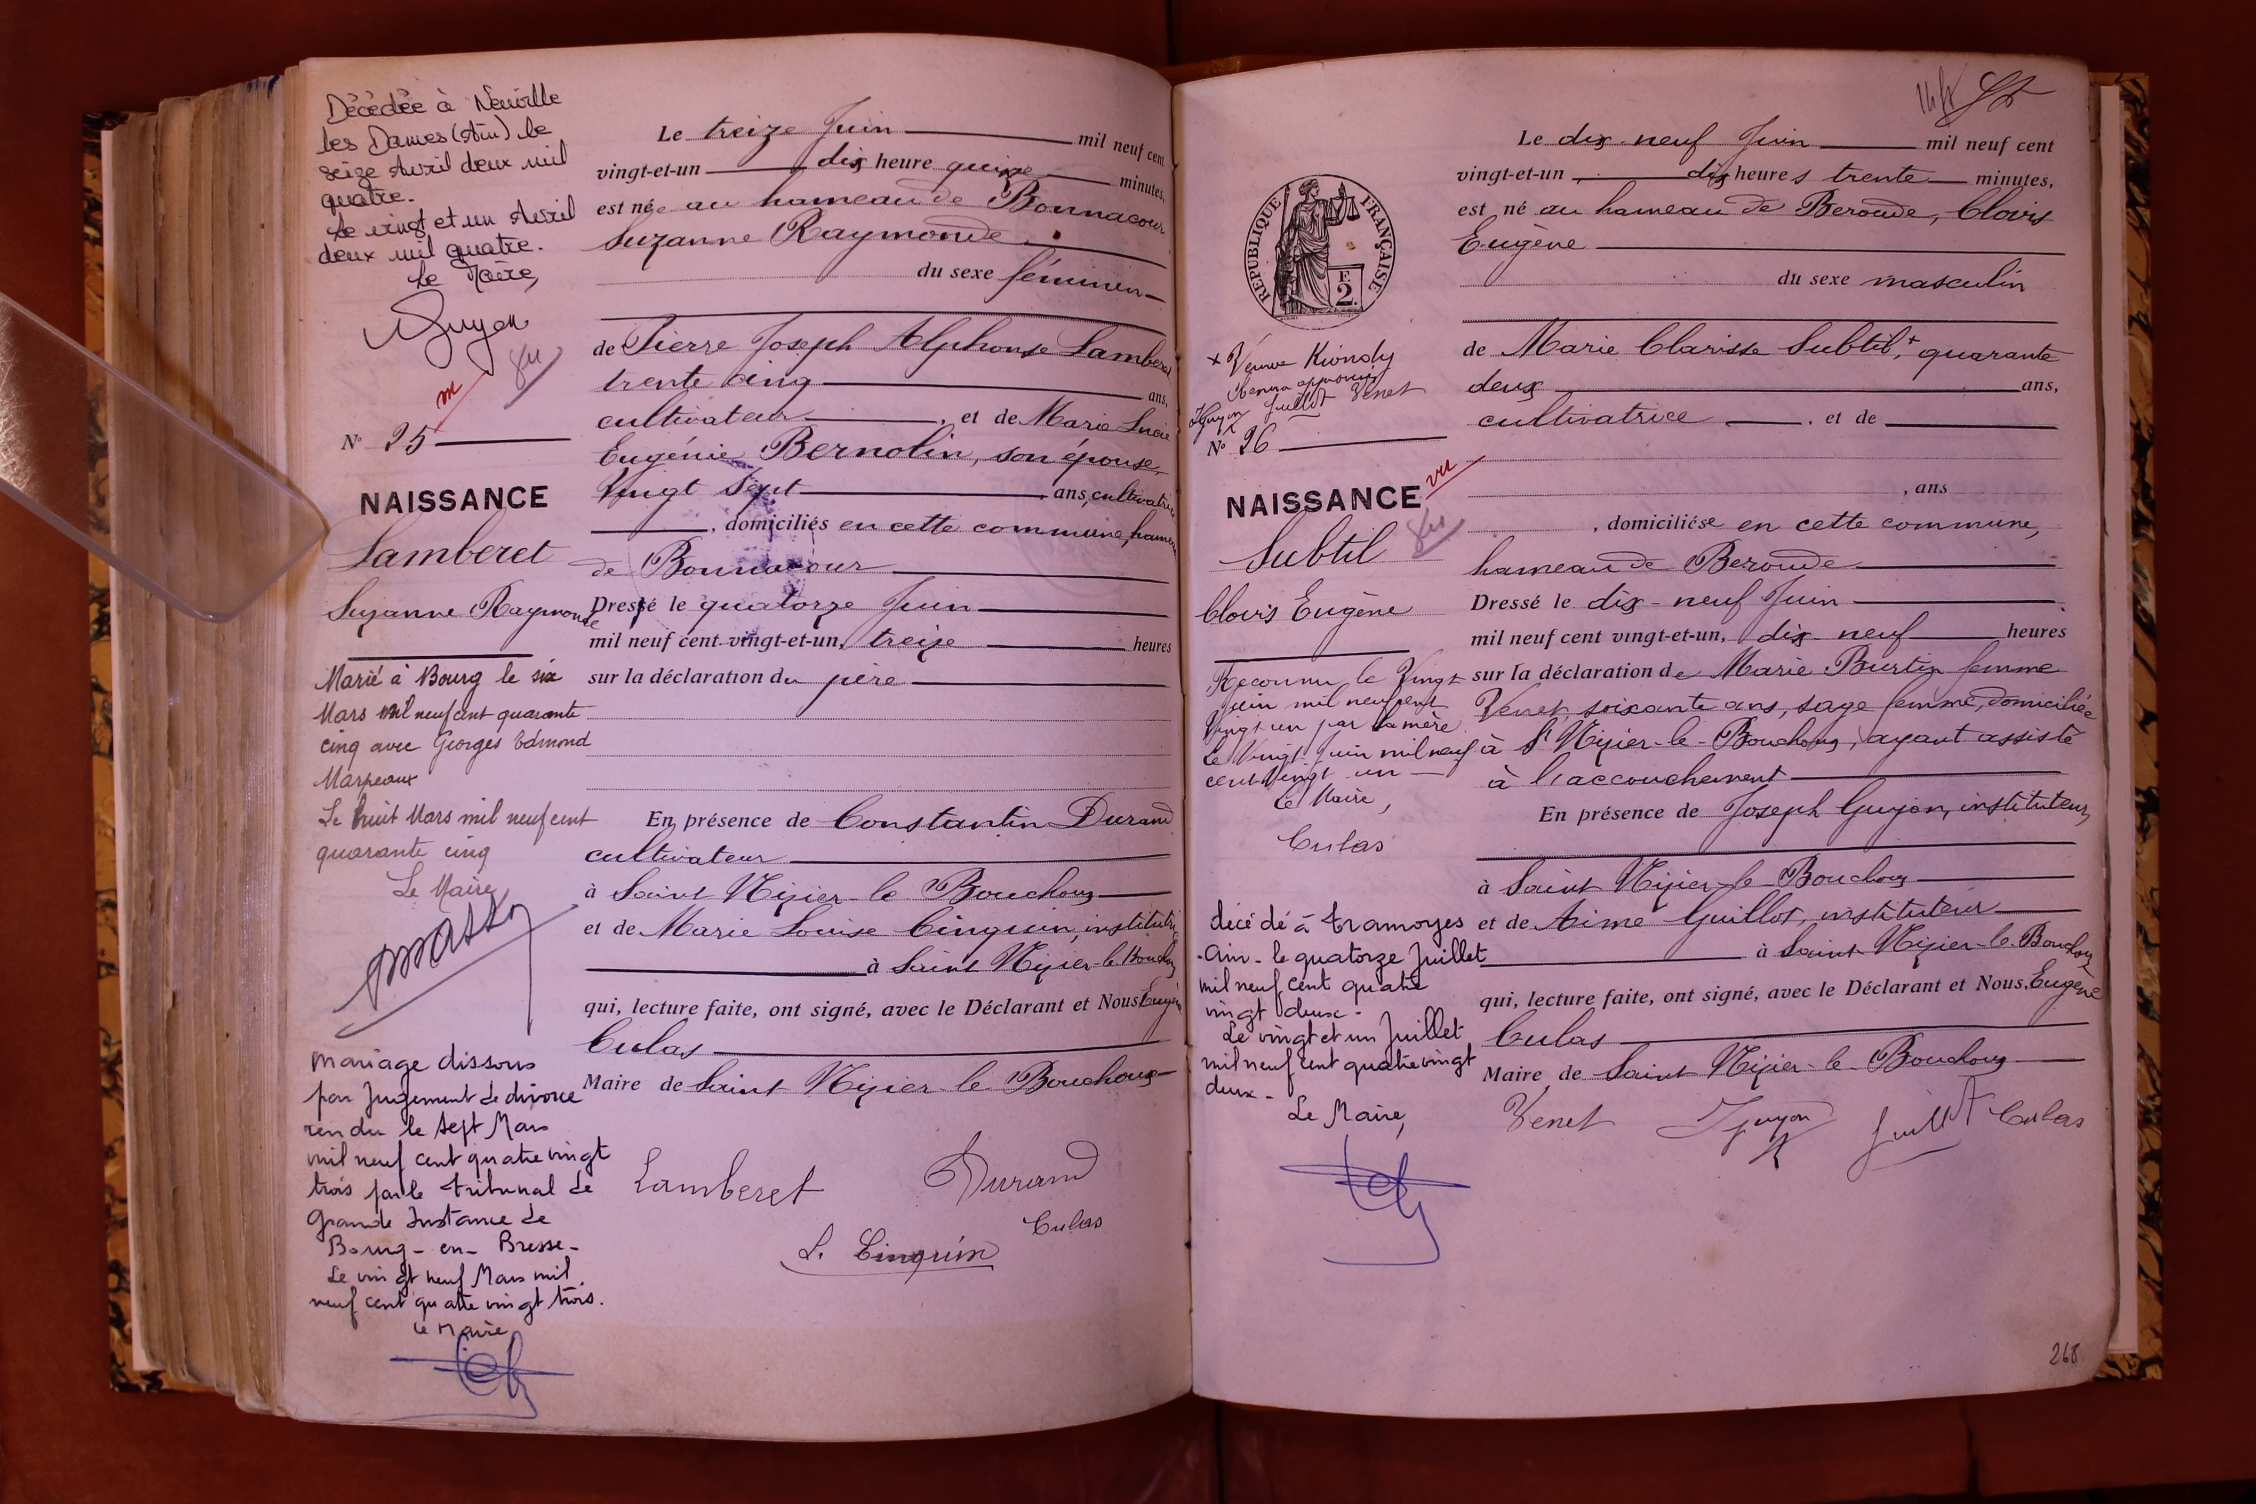 Décédée à Neuville
les Dames (Ain) le
seize Avril deux mil
quatre.
Le vingt et un Avril
deux mil quatre.
Le Maire,
Guyon
vu
N° 25
NAISSANCE
Lamberet
Suzanne Raymonde
Marié à Bourg le six
Mars mil neuf cent quarante
cinq avec Georges Edmond
Marpeaux
Le huit Mars mil neuf cent
quarante cinq
Le Maire
mariage dissous
par Jugement de divorce
rendu le sept Mars
mil neuf cent quatre vingt
trois par le tribunal de
Grande Instance de
Bourg-en-Bresse-
Le vingt neuf Mars mil
neuf cent quatre vingt trois.
Le Maire
Le treize Juin mil neuf cent
vingt-et-un dix heure quinze minutes,
est née au hameau de Bonnacour
Suzanne Raymonde
du sexe féminin
de Pierre Joseph Alphonse Lamberet
trente cinq ans,
cultivateur, et de Marie Lucie
Eugénie Bernolin, son épouse,
vingt sept ans, cultivatrice
, domiciliés en cette commune, hameau
de Bonnacour
Dressé le quatorze Juin
mil neuf cent vingt-et-un, treize heures
sur la déclaration du père
En présence de Constantin Durand
cultivateur
à Saint Nizier-le Bouchoux
et de Marie Louise Cinquin, institutrice
à Saint Nizier-le-Bouchoux
qui, lecture faite, ont signé, avec le Déclarant et Nous, Eugène
Culas
Maire de Saint Nizier le Bouchoux
Lamberet Durand
L. Cinquin Culas
RÉPUBLIQUE FRANÇAISE
E
2.
+ Veuve Kiondy
Renvoi approuvé
JGuyon Guillot Venet
N° 26
NAISSANCE
vu
Subtil
Clovis Eugène
Reconnu le Vingt
juin mil neuf cent
Vingt un par la mère
Le Vingt Juin mil neuf
cent Vingt un
Le Maire,
Culas
décédé à Tramoyes
-Ain- le quatorze Juillet
mil neuf cent quatre
vingt deux-
Le vingt et un Juillet
mil neuf cent quatre vingt
deux-
Le Maire,
Le dix-neuf Juin mil neuf cent
vingt-et-un, dix heures trente minutes,
est né au hameau de Beroude, Clovis
Eugène
du sexe masculin
de Marie Clarisse Subtil,+ quarante
deux ans,
cultivatrice, et de
, ans
, domiciliése en cette commune,
hameau de Beroude
Dressé le dix-neuf Juin
mil neuf cent vingt-et-un, dix-neuf heures
sur la déclaration de Marie Burtin femme
Venet, soixante ans, sage femme, domiciliée
à St Nizier-le-Bouchoux, ayant assisté
à l'accouchement
En présence de Joseph Guyon, instituteur,
à Saint Nizier-le-Bouchoux
et de Aimé Guillot, instituteur
à Saint-Nizier-le-Bouchoux
qui, lecture faite, ont signé, avec le Déclarant et Nous, Eugène
Culas
Maire de Saint Nizier-le-Bouchoux
Venet JGuyon Guillot Culas
268